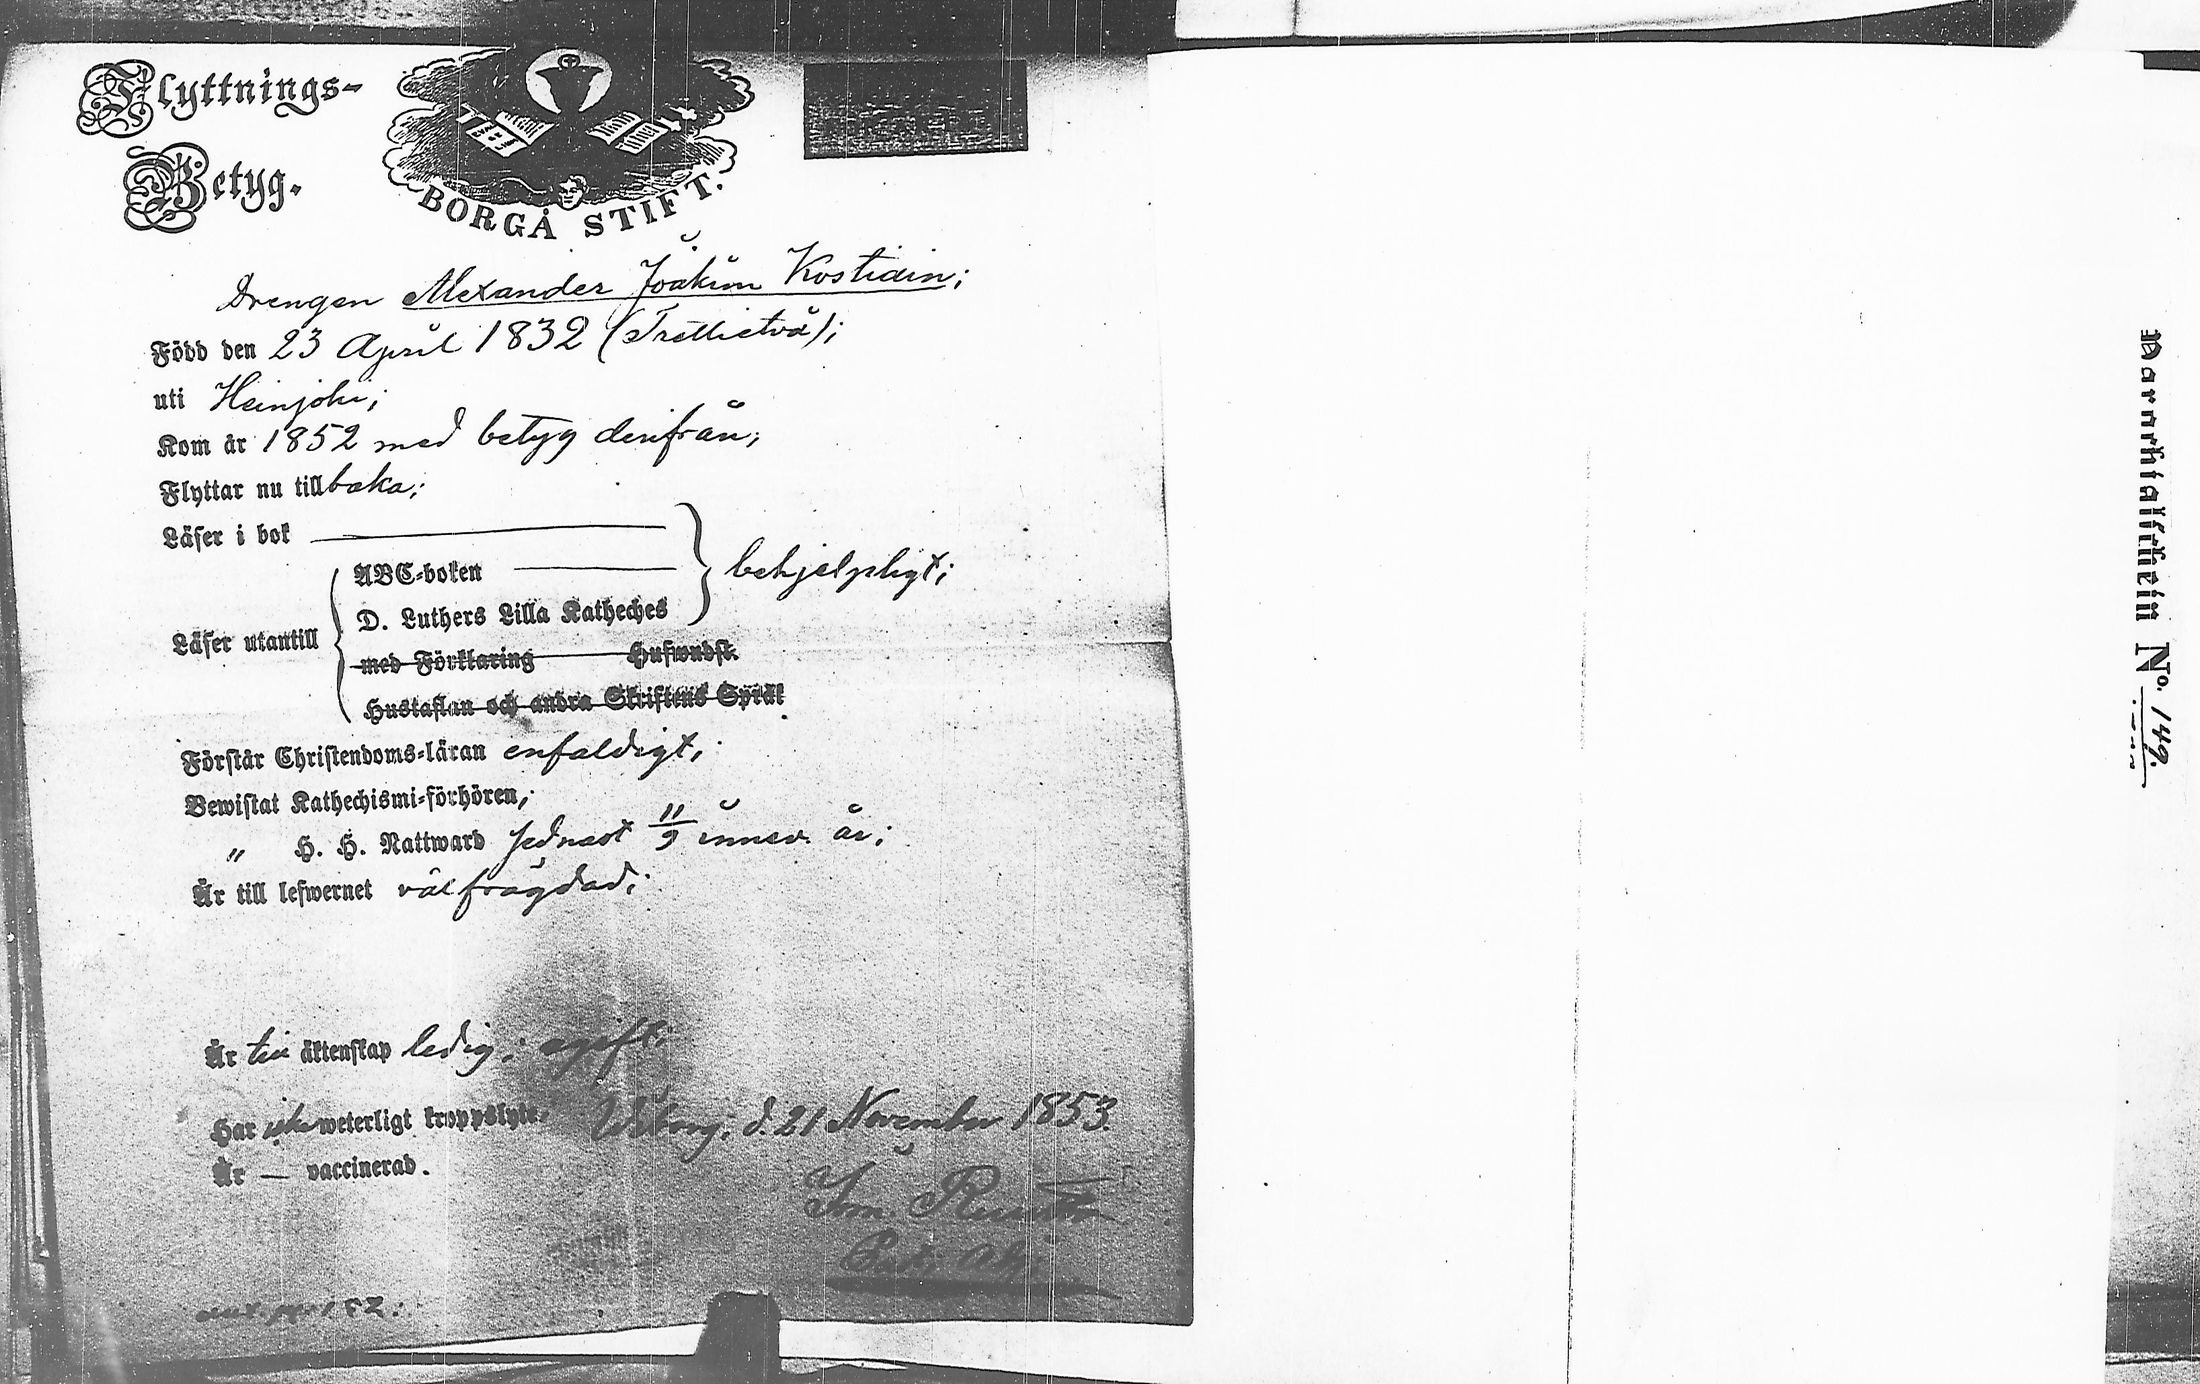 Flyttnings-
Betyg.
BORGÅ STIFT.
Drengen Alexander Joakim Kostiain;
Född den 23 April 1832 (Trettietvå);
uti Heinjoki;
Kom år 1852 med betyg derifrån;
Flyttar nu tillbaka;
Läser i bok
ABC-boken
behjelpligt;
D. Luthers Lilla Katheches
Läser utantill
med Förklaring Huswudst.
Hustaflan och andra Skriftens Språk
Förstår Christendoms-läran enfaldigt;
Bewistat Kathechismi-förhören,
" H. H. Nattward sednast 11/9 innev. år;
Är till lefwernet välfrägdad;
Är till äktenskap ledig; ogift;
Har icke weterligt kroppslyte.
Wiborg, d. 21 November 1853.
Är — vaccinerad.
No. 149.